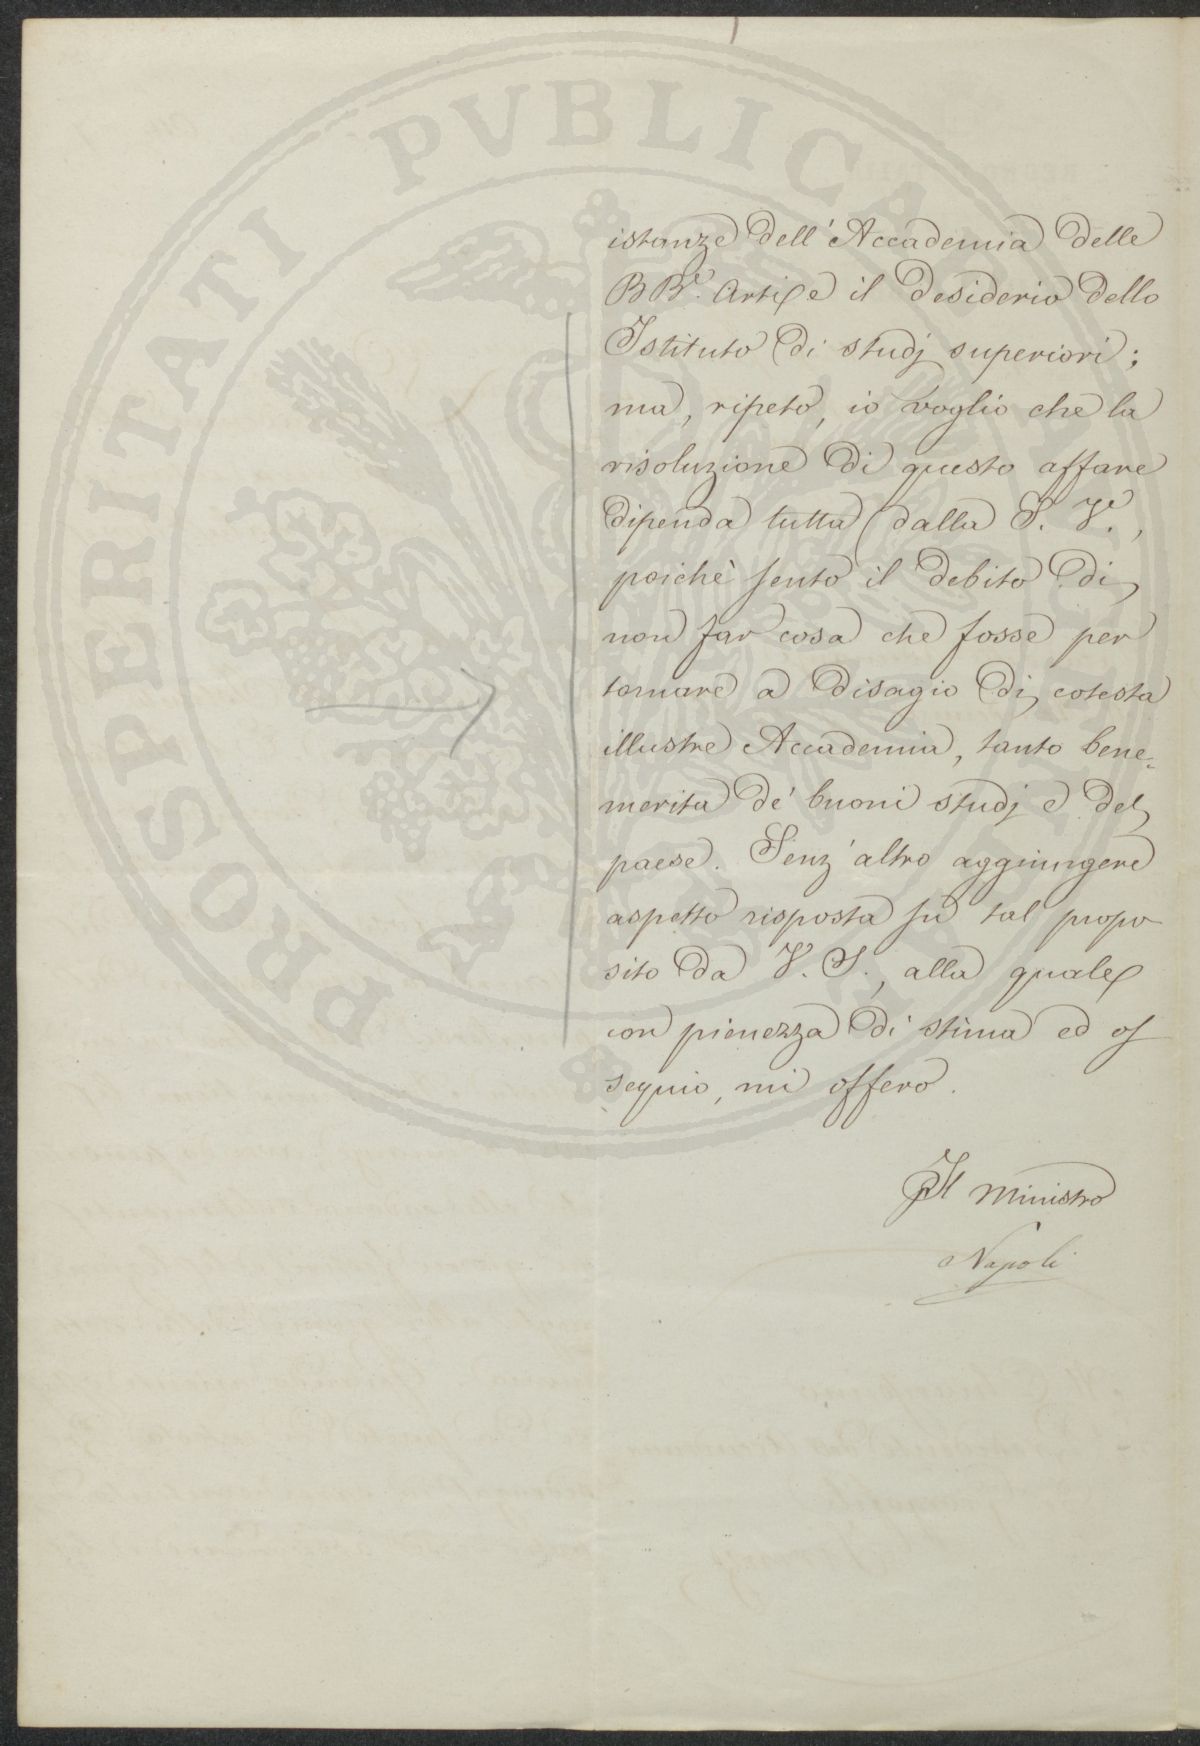 PROSPERITATI PVBLICAE
istanze dell'Accademia delle
BB. Arti e il desiderio dello
Istituto di studj superiori;
ma, ripeto, io voglio che la
risoluzione di questo affare
dipenda tutta dalla S. V.,
poichè sento il debito di
non far cosa che fosse per
tornare a disagio di cotesta
illustre Accademia, tanto bene=
merita de' buoni studj e del
paese. Senz'altro aggiungere
aspetto risposta su tal propo
sito da V. S., alla quale
con pienezza di stima ed os
sequio, mi offero.
Il Ministro
Napoli